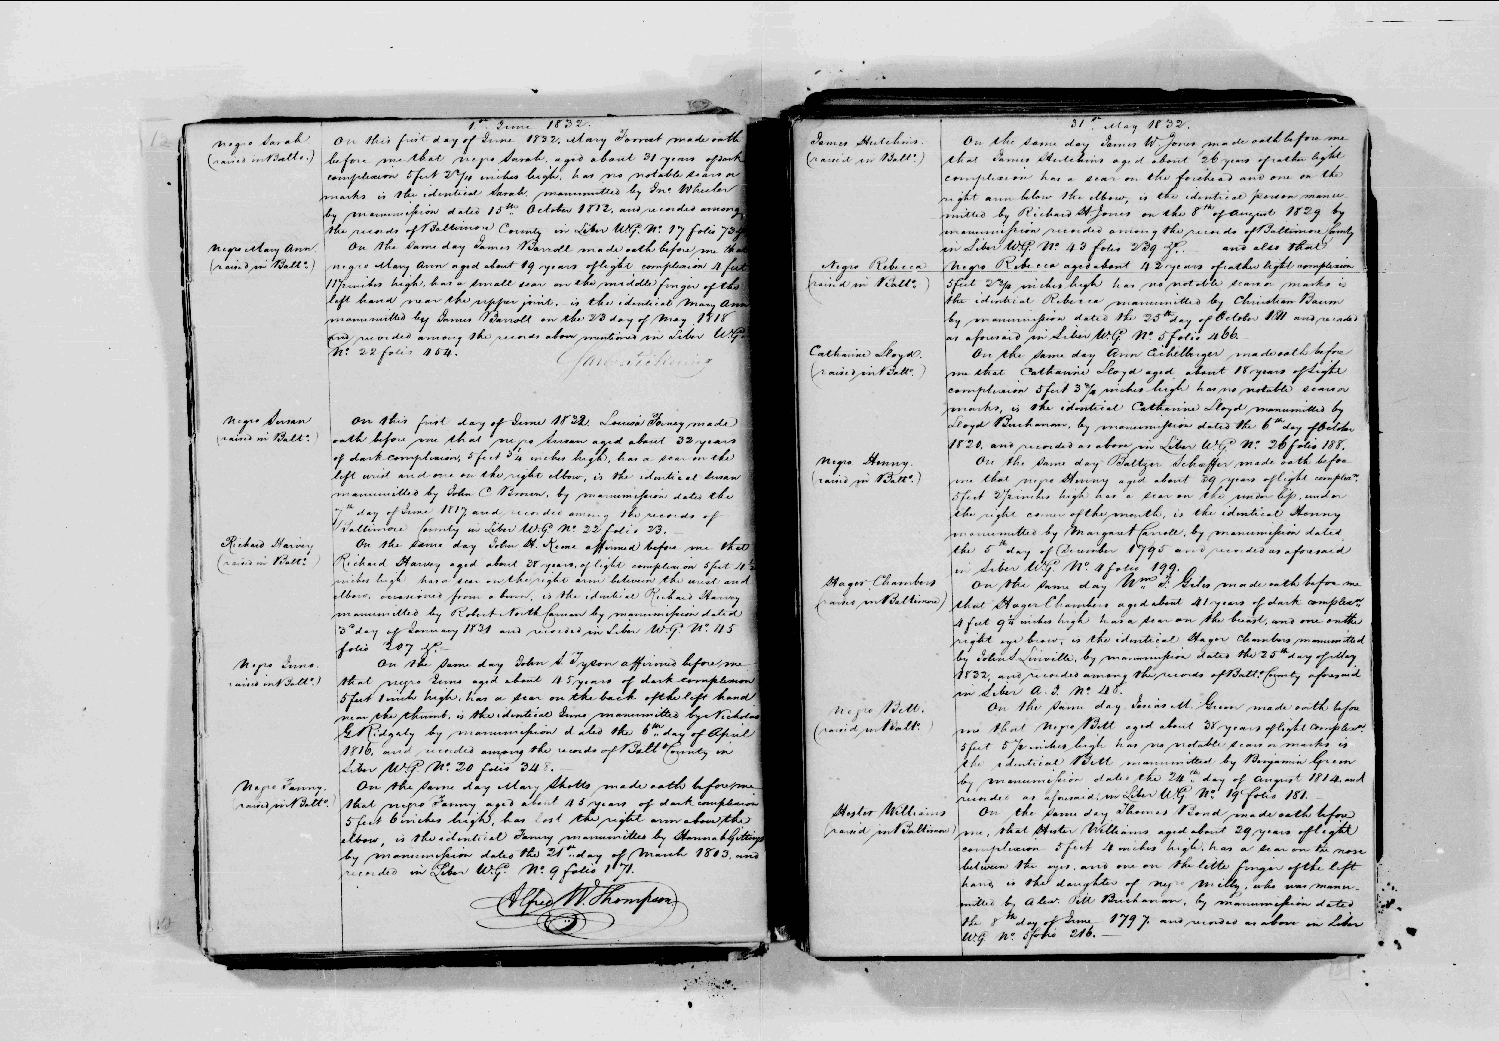 1st June 1832.
Negro Sarah
(raised in Balto.)
On this first day of June 1832, Mary Forrest made oath
before me that negro Sarah, aged about 31 years of dark
complexion 5 feet inches high, has no notable scars or
marks is the identical Sarah, manumitted by Jno. Wheeler
by manumission dated 15th October 1812, and recorded among
the records of Baltimore County in Liber W.G. No. 17 folio
Negro Mary Ann
(raised in Balto.)
On the same day James Barroll made oath before me that
negro Mary Ann aged about 19 years of light complexion 4 feet
inches high, has a small scar on the middle finger of the
left hand near the upper joint, is the identical Mary Ann
manumitted by James Barroll on the 23 day of May 1818
and recorded among the records above mentioned in Liber W.G.
No. 22 folio 454.
Negro Susan
(raised in Balto.)
On this first day of June 1832, Louisa made
oath before me that negro Susan aged about 32 years
of dark complexion, 5 feet 3¼ inches high, has a scar on the
left wrist and one on the right elbow, is the identical Susan
manumitted by John C Brown, by manumission dated the
7th day of June 1817 and recorded among the records of
Baltimore County in Liber W.G. No. 22 folio 23.
Richard Harvey
(raised in Balto.)
On the same day John H. affirmed before me that
Richard Harvey aged about 28 years, of light complexion 5 feet
inches high has a scar on the right arm between the wrist and
elbow, occasioned from a burn, is the identical Richard Harvey
manumitted by Robert North Carnan by manumission dated
3d day of January 1831 and recorded in Liber W.G. No. 45
folio 207 &c.
Negro Juno.
(raised in Balto.)
On the same day John S Tyson affirmed before me
that negro Juno aged about 45 years of dark complexion
5 feet 1 inch high, has a scar on the back of the left hand
near the thumb, is the identical Juno manumitted by Nicholas
G Ridgely by manumission dated the 6th day of April
1816, and recorded among the records of Balto. County in
Liber W.G. No. 20 folio 348.
Negro Fanny.
(raised in Balto.)
On the same day Mary Shotts made oath before me
that negro Fanny aged about 45 years of dark complexion
5 feet 6 inches high, has lost the right arm above the
elbow, is the identical Fanny manumitted by Hannah Gittings
by manumission dated the 21st day of March 1803, and
recorded in Liber W.G. No. 9 folio 171.
Alfred W Thompson
31st May 1832.
James Hutchins.
(raised in Balto.)
On the same day James W Jones made oath before me
that James Hutchins aged about 26 years of rather light
complexion has a scar on the forehead and one on the
right arm below the elbow, is the identical person manu-
mitted by Richard H Jones on the 8th of August 1829 by
manumission recorded among the records of Baltimore County
in Liber W.G. No. 43 folio 239 &c. and also that
Negro Rebecca
(raised in Balto.)
Negro Rebecca aged about 42 years of rather light complexion
5 feet inches high has no notable scars or marks is
the identical Rebecca manumitted by Christian Baum
by manumission dated the 25th day of October 1811 and recorded
as aforesaid in Liber W.G. No. 5 folio 466.
Catharine Lloyd.
(raised in Balto.)
On the same day Ann Eichelberger made oath before
me that Catharine Lloyd aged about 18 years of light
complexion 5 feet inches high has no notable scars or
marks, is the identical Catharine Lloyd manumitted by
Lloyd Buchanan, by manumission dated the 6th day of October
1820, and recorded as above in Liber W.G. No. 26 folio 188.
Negro Henny.
(raised in Balto.)
On the same day Baltzer Schaffer made oath before
me that negro Henny aged about 39 years of light complexn.
5 feet 2½ inches high has a scar on the under lip, under
the right corner of the mouth, is the identical Henny
manumitted by Margaret Carroll, by manumission dated
the 5th day of December 1795 and recorded as aforesaid
in Liber W.G. No. 4 folio 199.
Hager Chambers
(raised in Baltimore)
On the same day Wm. F. Giles made oath before me
that Hager Chambers aged about 41 years of dark complexn.
4 feet inches high has a scar on the breast, and one on the
right eye brow, is the identical Hager Chambers manumitted
by John S Linville, by manumission dated the 25th day of May
1832, and recorded among the records of Balto. County aforesaid
in Liber A.I. No. 48.
Negro Bett.
(raised in Balto.)
On the same day Josias M. Green made oath before
me that Negro Bett aged about 38 years of light complexn.
5 feet 5½ inches high has no notable scars or marks is
the identical Bett manumitted by Benjamin Green
by manumission dated the 24th day of August 1814 and
recorded as aforesaid, in Liber W.G. No. 19 folio 181.
Hester Williams
(raised in Baltimore)
On the same day Thomas Bond made oath before
me, that Hester Williams aged about 29 years of light
complexion 5 feet 4 inches high, has a scar on the nose
between the eyes, and one on the little finger of the left
hand, is the daughter of negro Milly, who was manu-
mitted by Alex. Pitt Buchanan, by manumission dated
the 8th day of June 1797 and recorded as above in Liber
W.G. No. 5 folio 216.